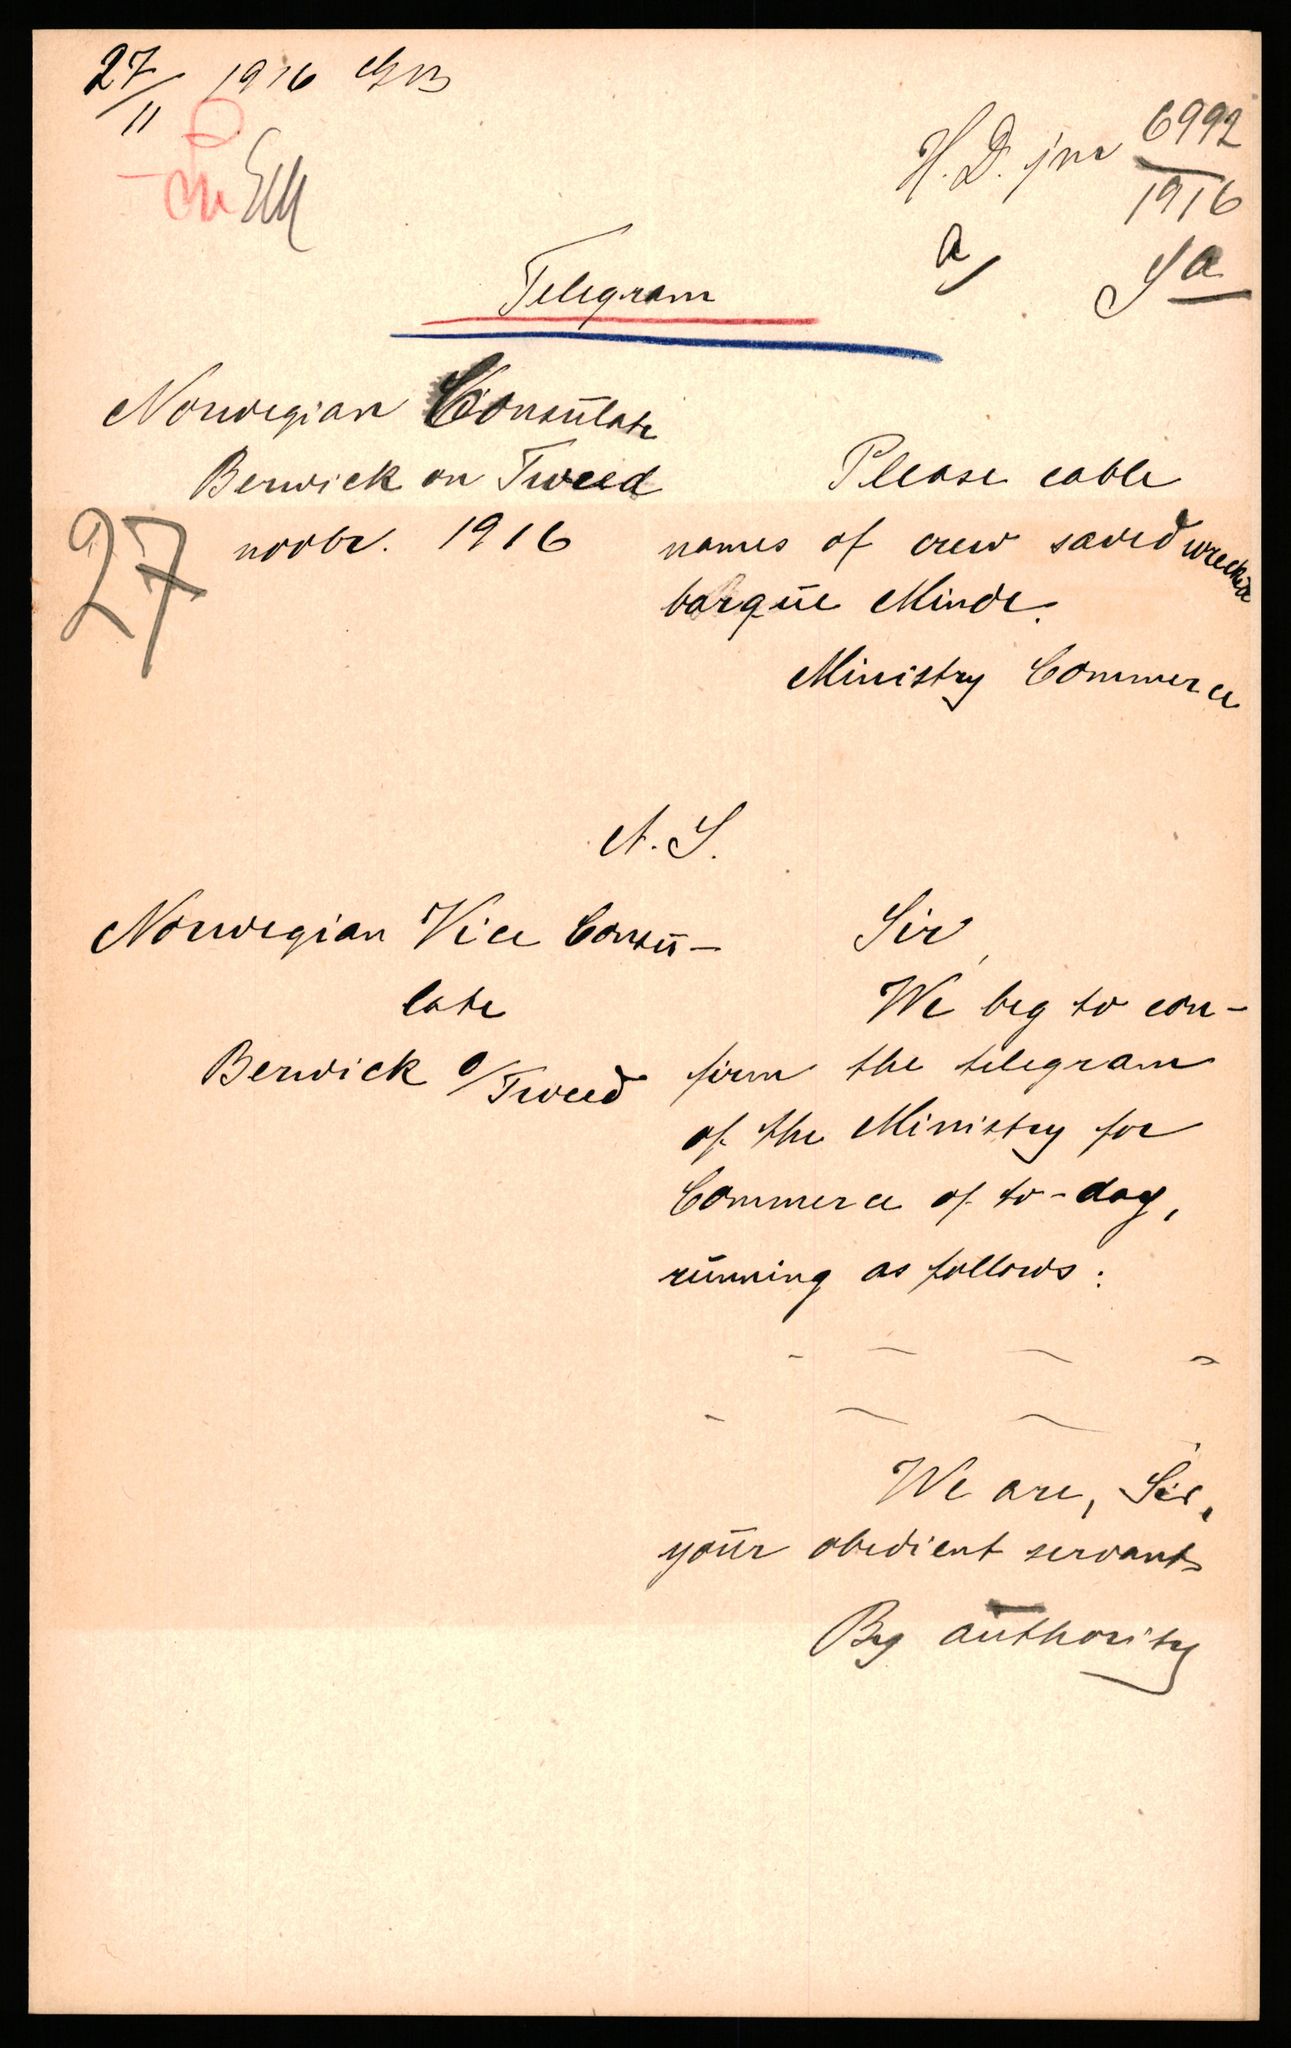 27/11 1916
H.D. jnr 6992
1916
a/
Telegram
Norwegian Consulate
Berwick on Tweed
27 novbr. 1916
Please cable
names of crew saved wrecked
barque Minde.
Ministry Commerce
A. S.
Norwegian Vice Consu-
late
Berwick o/Tweed
Sir,
We beg to con-
firm the telegram
of the Ministry for
Commerce of to-day,
running as follows:
We are, Sir,
your obedient servants
By authority